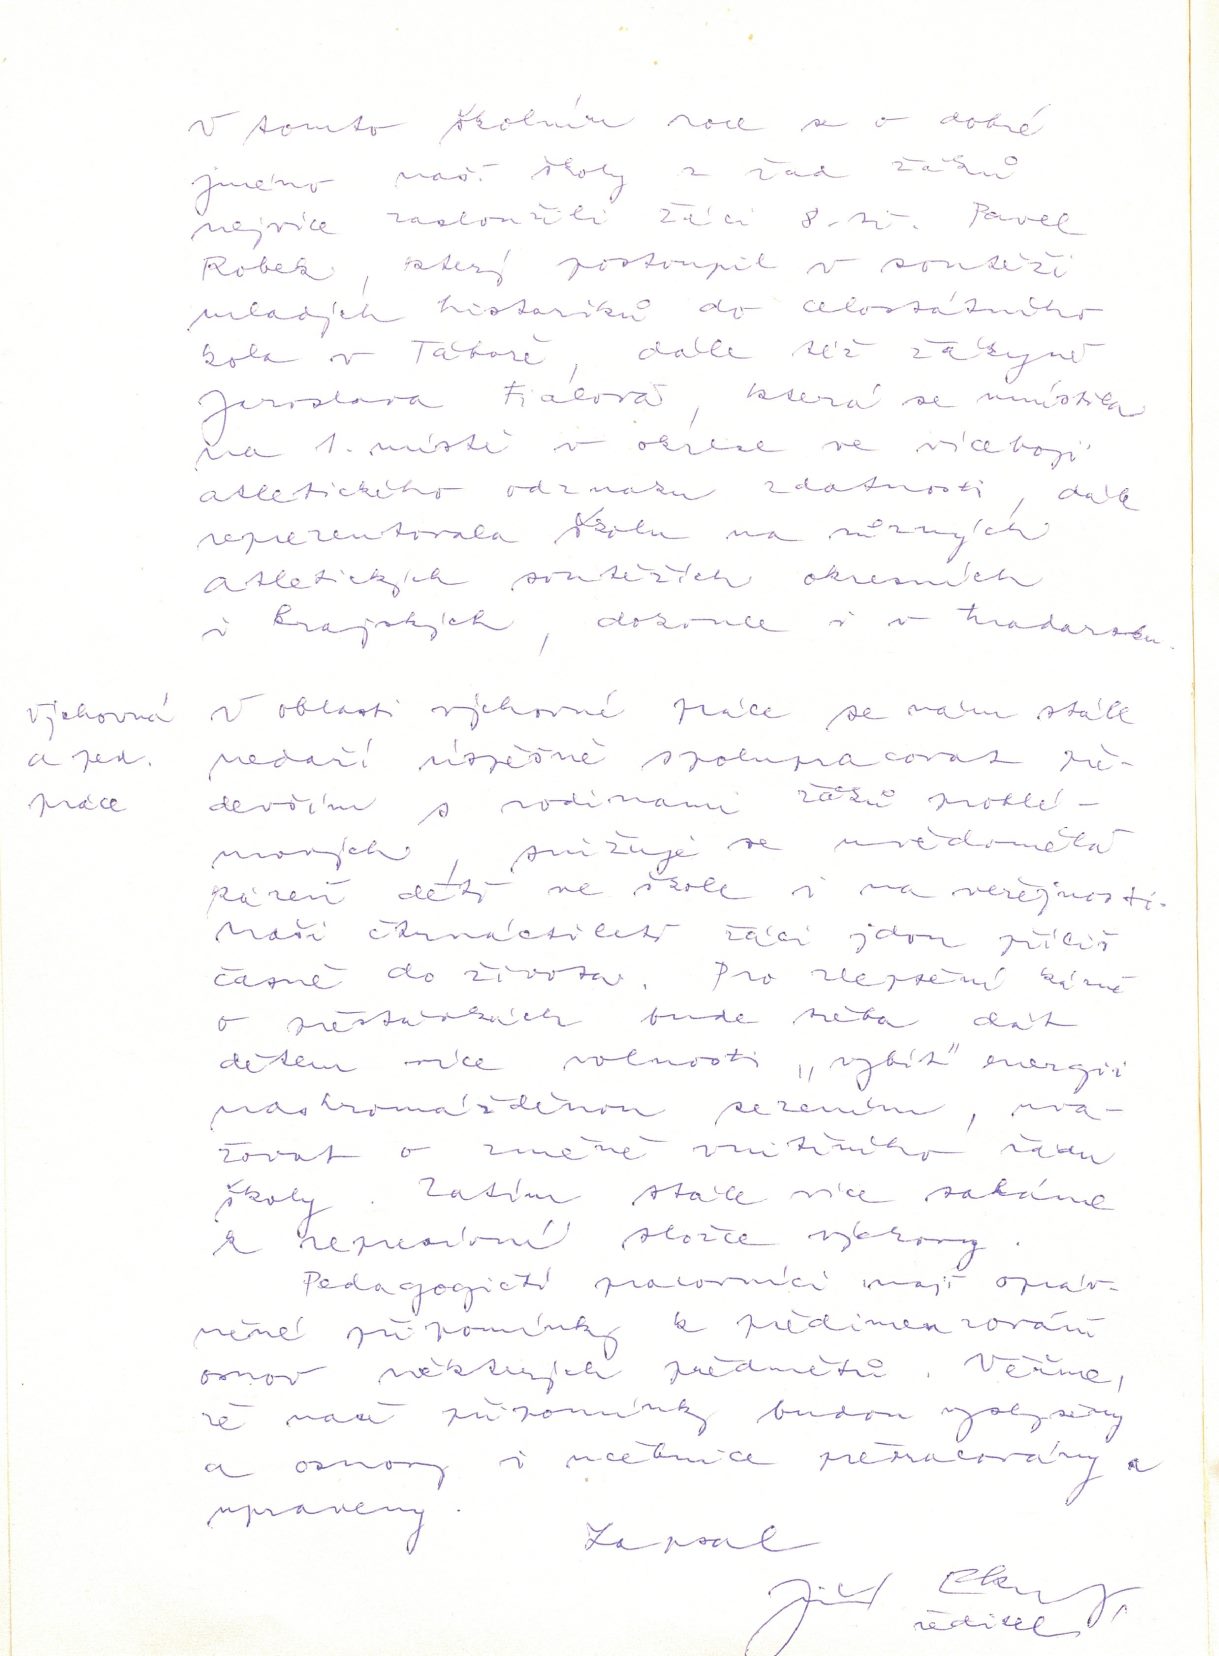 V tomto školním roce se o dobré
jméno naš. školy z řad žáků
nejvíce zasloužili žáci 8. tř. Pavel
Robek, který postoupil v soutěži
mladých historiků do celostátního
kola v Táboře, dále též žákyně
Jaroslava Fialová, která se umístila
na 1. místě v okrese ve víceboji
atletického odznaku zdatnosti, dále
reprezentovala školu na různých
atletických soutěžích okresních
i krajských, dokonce i v Maďarsku.
Výchovná
a ped.
práce
V oblasti výchovné práce se nám stále
nedaří úspěšně spolupracovat pře-
devším s rodinami žáků problé-
mových, snižuje se uvědomělá
kázeň dětí ve škole i na veřejnosti.
Naši čtrnáctiletí žáci jdou příliš
časně do života. Pro zlepšení kázně
o přestávkách bude třeba dát
dětem více volnosti „vybít" energii
nashromážděnou sezením, uva-
žovat o změně vnitřního řádu
školy. Zatím stále více saháme
k represivní složce výchovy.
Pedagogičtí pracovníci mají opráv-
něné připomínky k předimenzování
osnov některých předmětů. Věříme,
že naše připomínky budou vyslyšeny
a osnovy i učebnice přepracovány a
upraveny.
Zapsal
Jiří
ředitel